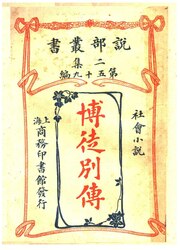 說部叢書
二集
第五十九編
社會小說
博徒別傳
上海
商務印書館發行